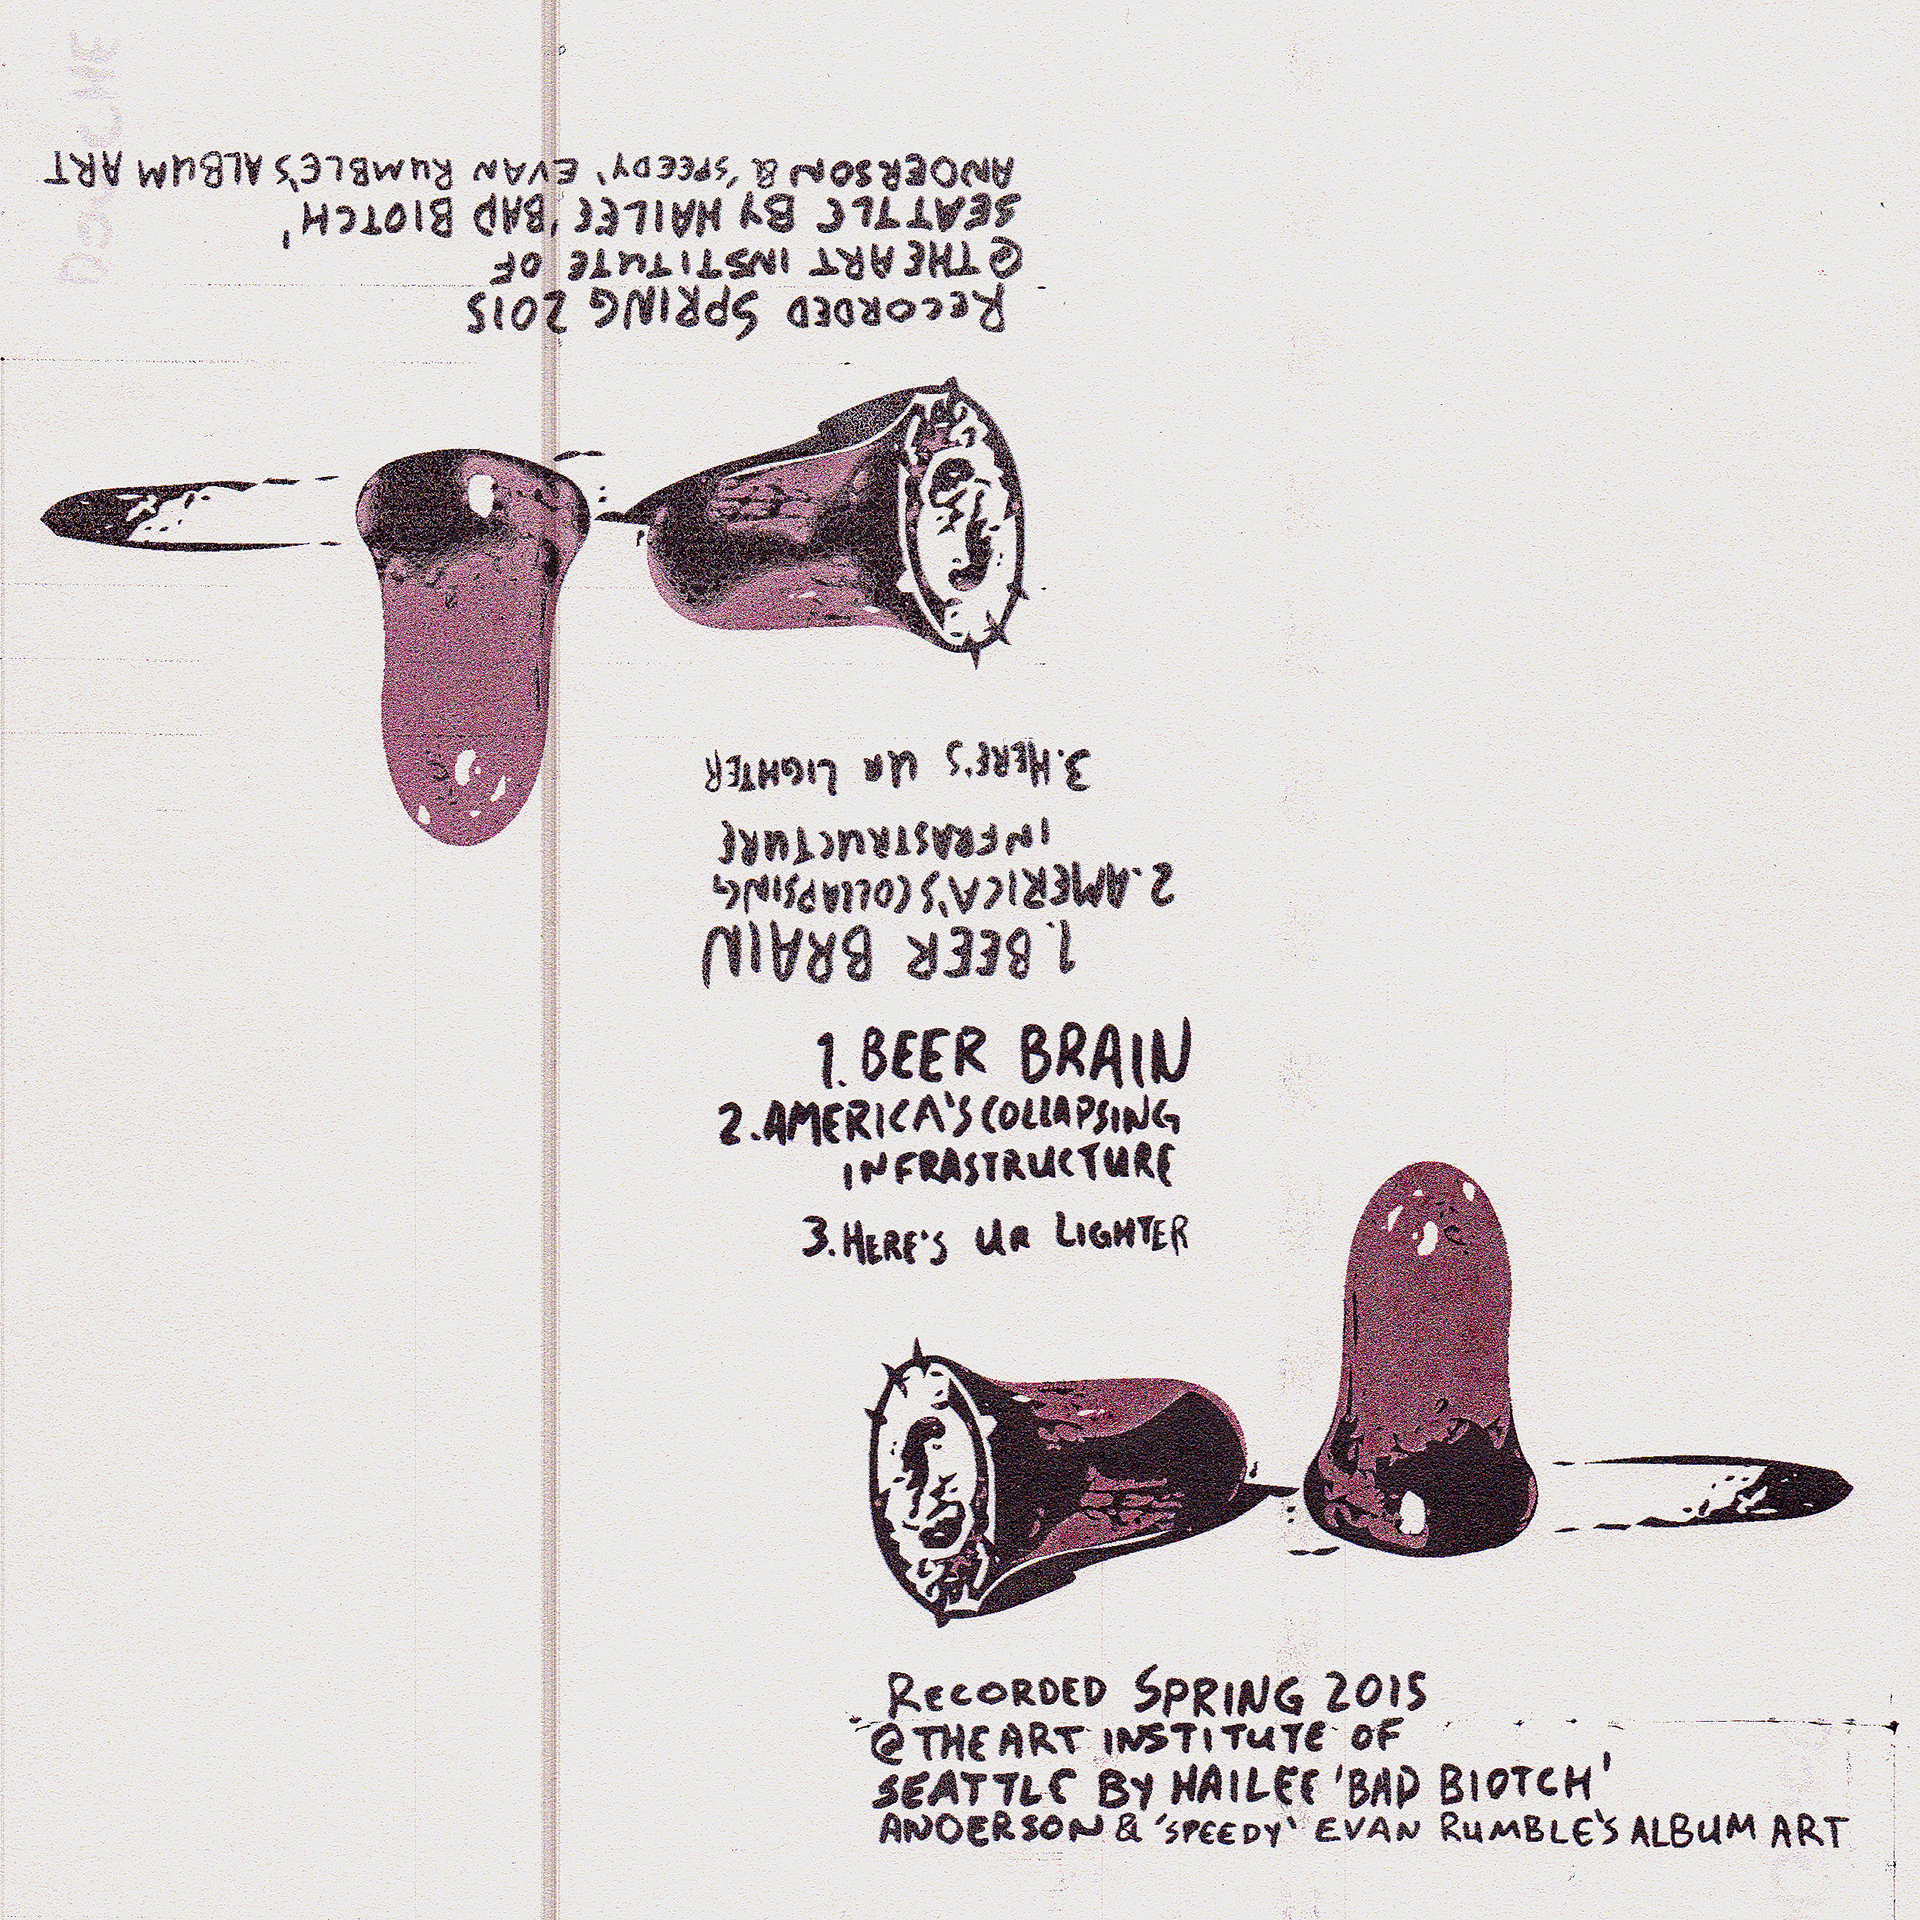 RECORDED SPRING 2015
@ THE ART INSTITUTE OF
SEATTLE BY HAILEE 'BAD BIOTCH'
ANDERSON & 'SPEEDY' EVAN RUMBLE'S ALBUM ART
1. BEER BRAIN
2. AMERICA'S COLLAPSING
INFRASTRUCTURE
3. HERE'S UR LIGHTER
1. BEER BRAIN
2. AMERICA'S COLLAPSING
INFRASTRUCTURE
3. HERE'S UR LIGHTER
RECORDED SPRING 2015
@ THE ART INSTITUTE OF
SEATTLE BY HAILEE 'BAD BIOTCH'
ANDERSON & 'SPEEDY' EVAN RUMBLE'S ALBUM ART